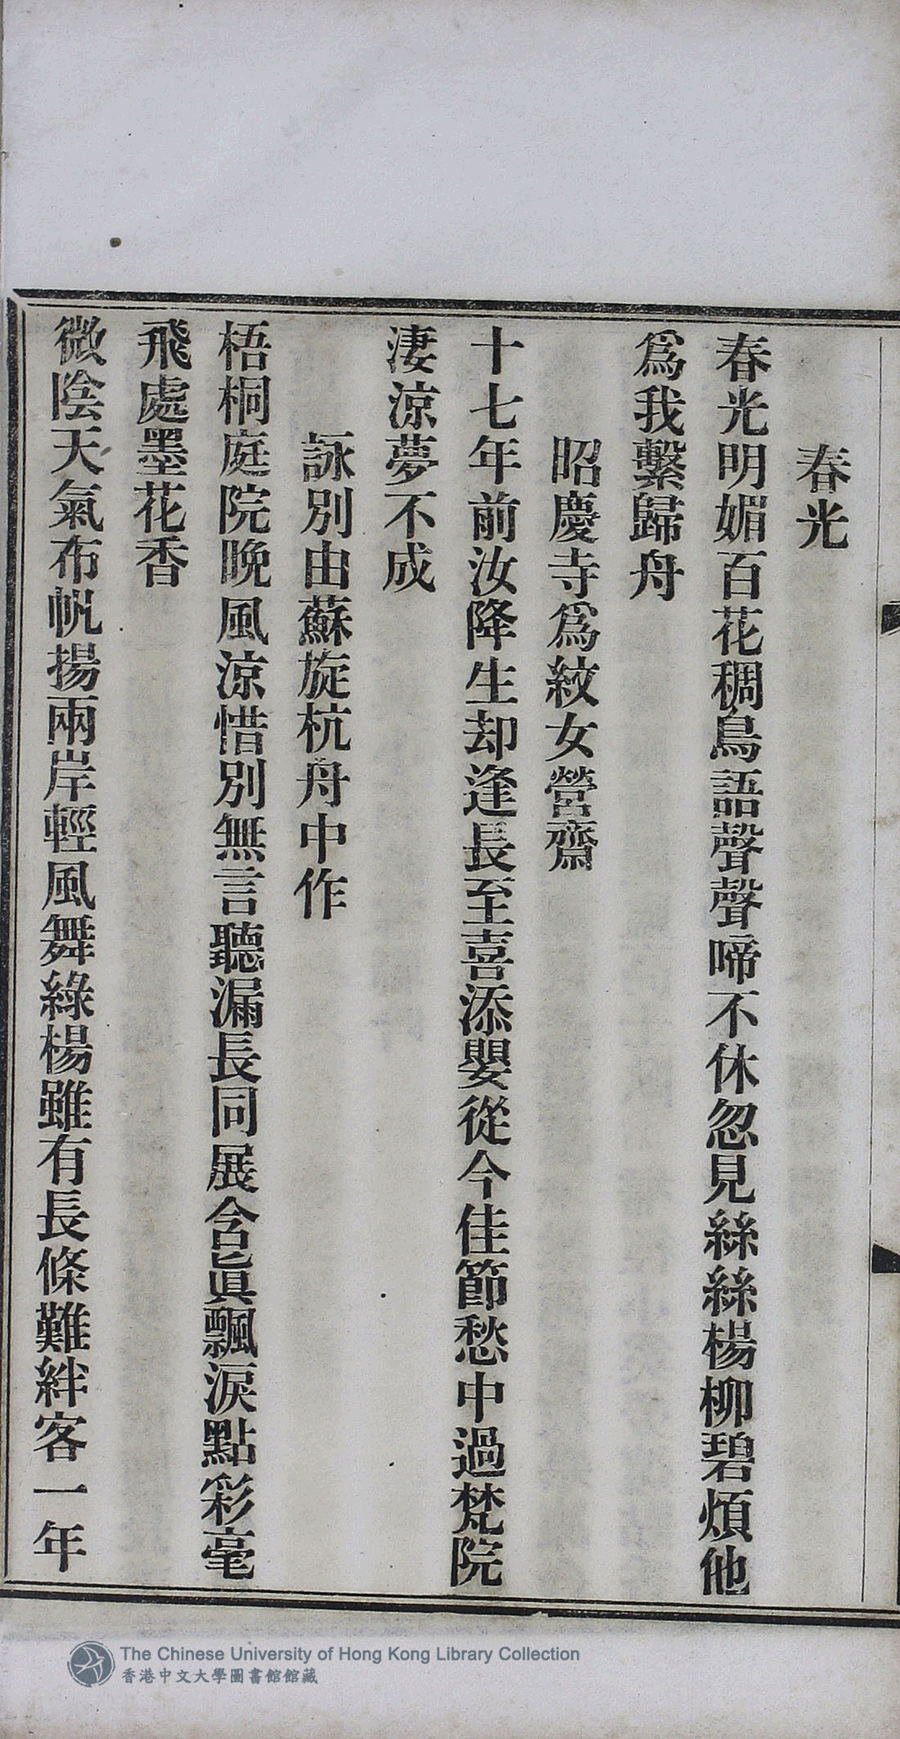 春光
春光明媚百花稠鳥語聲聲啼不休忽見絲絲楊柳碧煩他
爲我繫歸舟
昭慶寺爲紋女營齋
十七年前汝降生却逢長至喜添嬰從今佳節愁中過梵院
淒涼夢不成
詠別由蘇旋杭舟中作
梧桐庭院晚風涼惜別無言聽漏長同展含眞飄淚點彩毫
飛處墨花香
微陰天氣布帆揚兩岸輕風舞綠楊雖有長條難絆客一年
The Chinese University of Hong Kong Library Collection
香港中文大學圖書館館藏